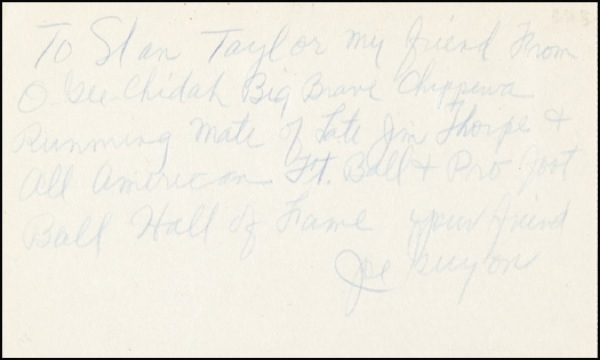 To Stan Taylor my friend From
O-Gee-Chidah Big Brave Chippewa
Running Mate of Late Jim Thorpe +
All American Ft. Ball + Pro Foot
Ball Hall of Fame your friend
Joe Guyon